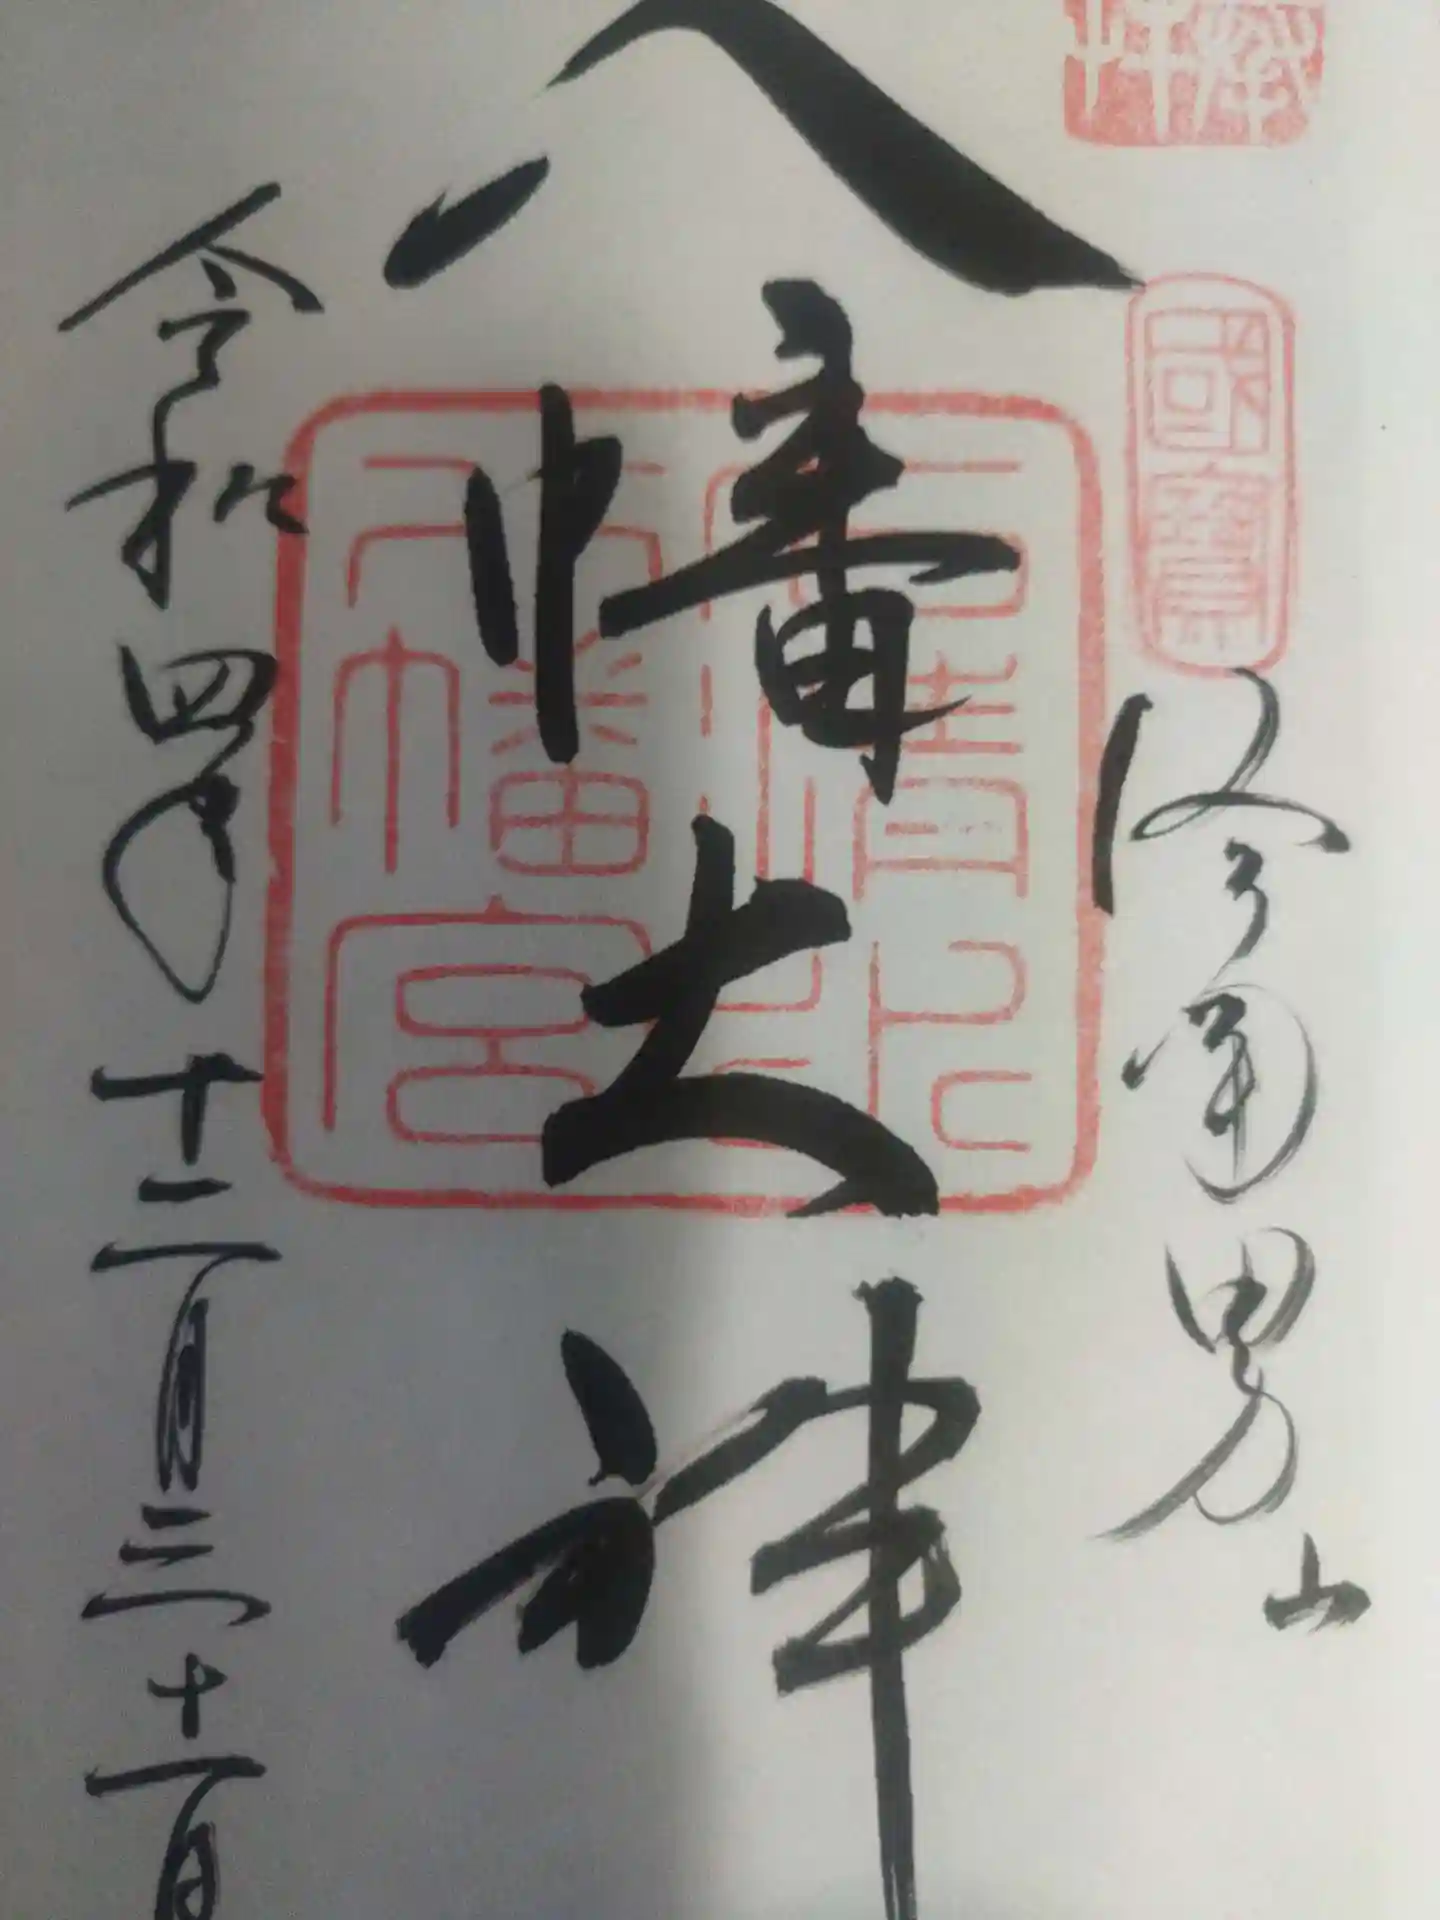 奉拝
國寶
洛南男山
八幡大神
石清水
八幡宮
令和四年十二月三十一日